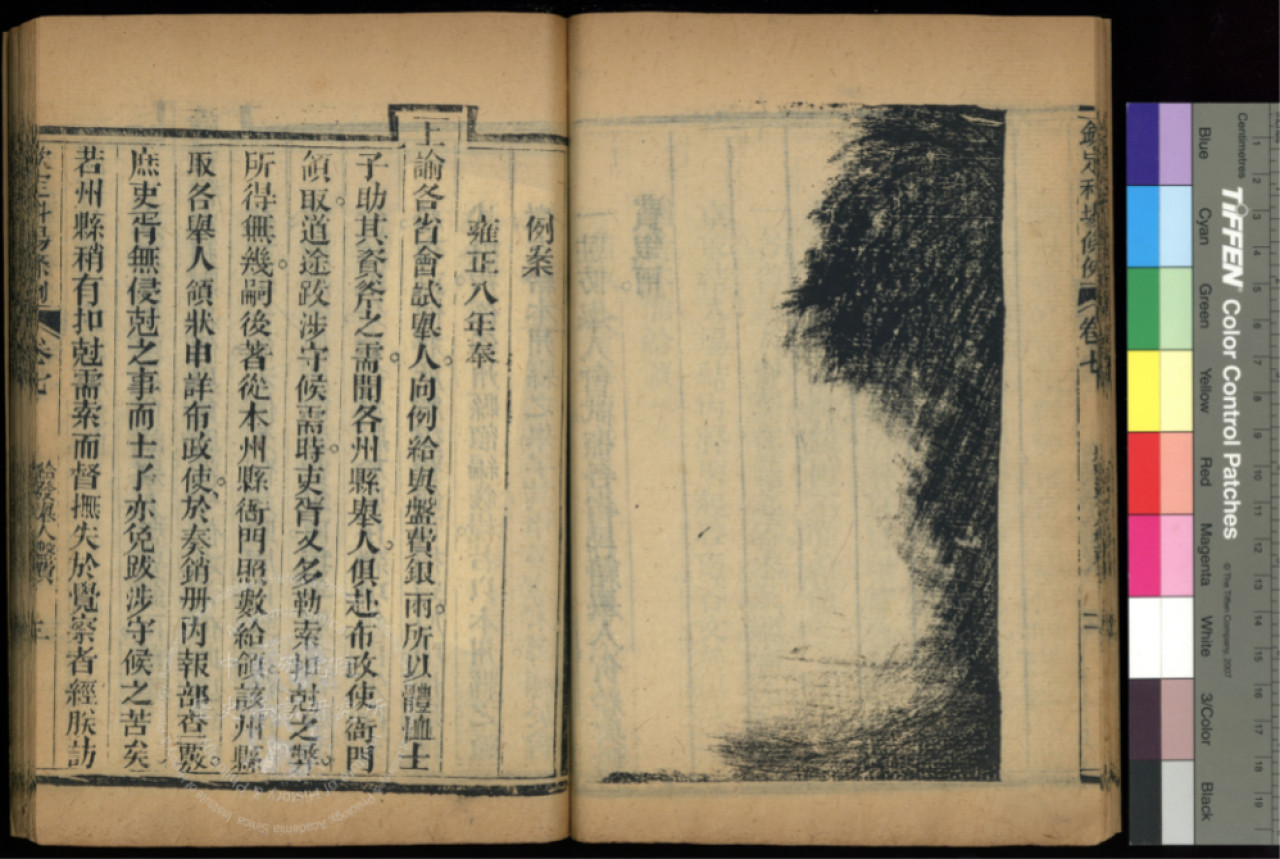 欽定科場條例
卷七
二
例案
雍正八年奉
上諭各省會試舉人向例給與盤費銀兩所以體恤士
子助其資斧之需聞各州縣舉人俱赴布政使衙門
領取道途跋涉守候需時吏胥又多勒索扣尅之弊
所得無幾嗣後著從本州縣衙門照數給領該州縣
取各舉人領狀申詳布政使於奏銷册內報部查覈
庶吏胥無侵尅之事而士子亦免跋涉守候之苦矣
若州縣稍有扣尅需索而督撫失於覺察者經朕訪
欽定科場條例
卷七
給發舉人盤費
三
Centimetres
TIFFEN Color Control Patches
© The Tiffen Company, 2007
Blue
Cyan
Green
Yellow
Red
Magenta
White
3/Color
Black
1 2 3 4 5 6 7 8 9 10 11 12 13 14 15 16 17 18 19